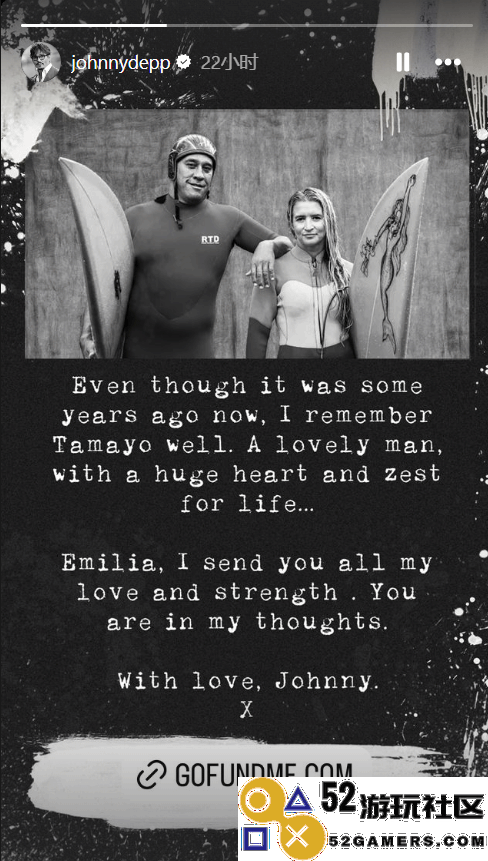 johnnydepp 22小时
RTD
Even though it was some
years ago now, I remember
Tamayo well. A lovely man,
with a huge heart and zest
for life...
Emilia, I send you all my
love and strength . You
are in my thoughts.
With love, Johnny.
X
GOFUNDME.COM
52游玩社区
52GAMERS.COM